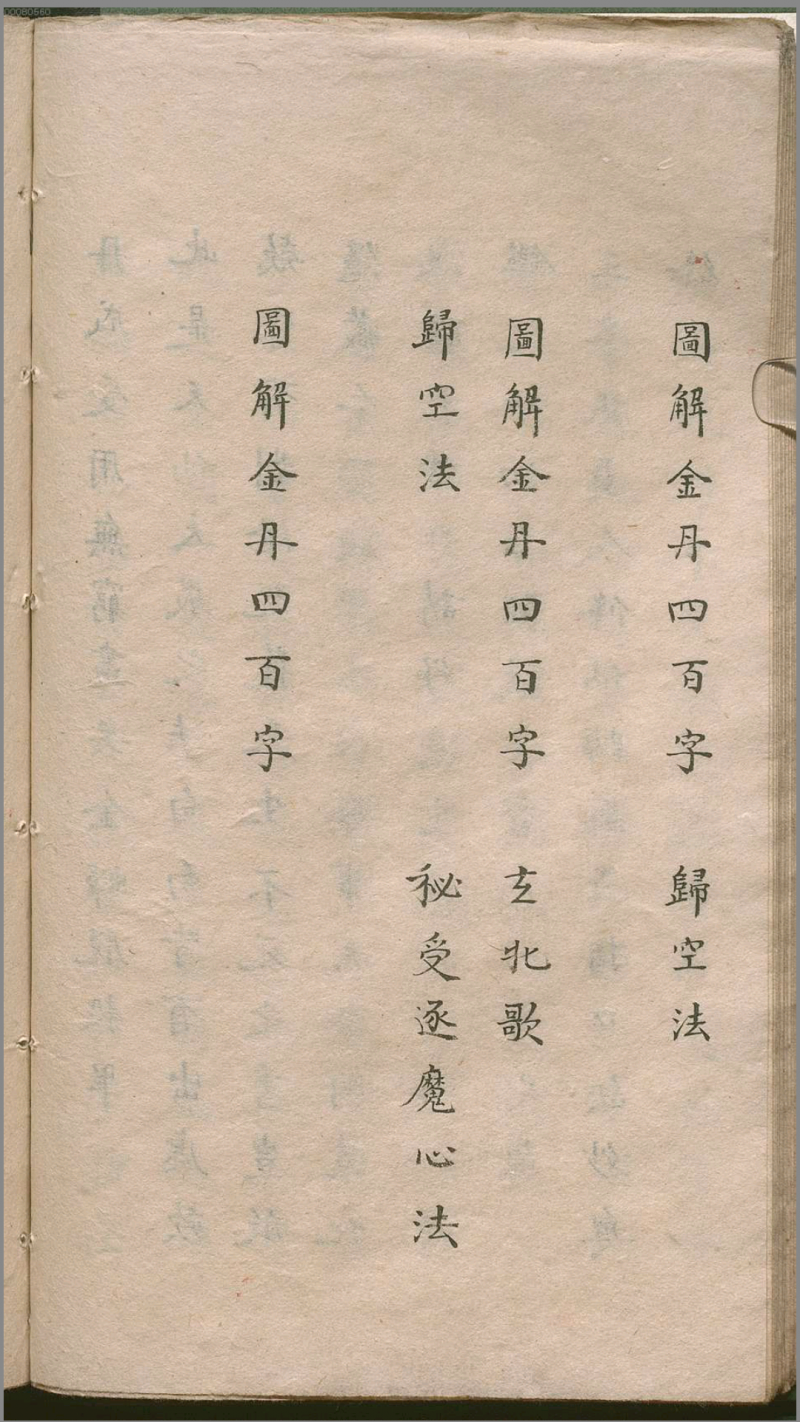 圖解金丹四百字　歸空法
圖解金丹四百字　玄牝歌
歸空法　秘受逐魔心法
圖解金丹四百字